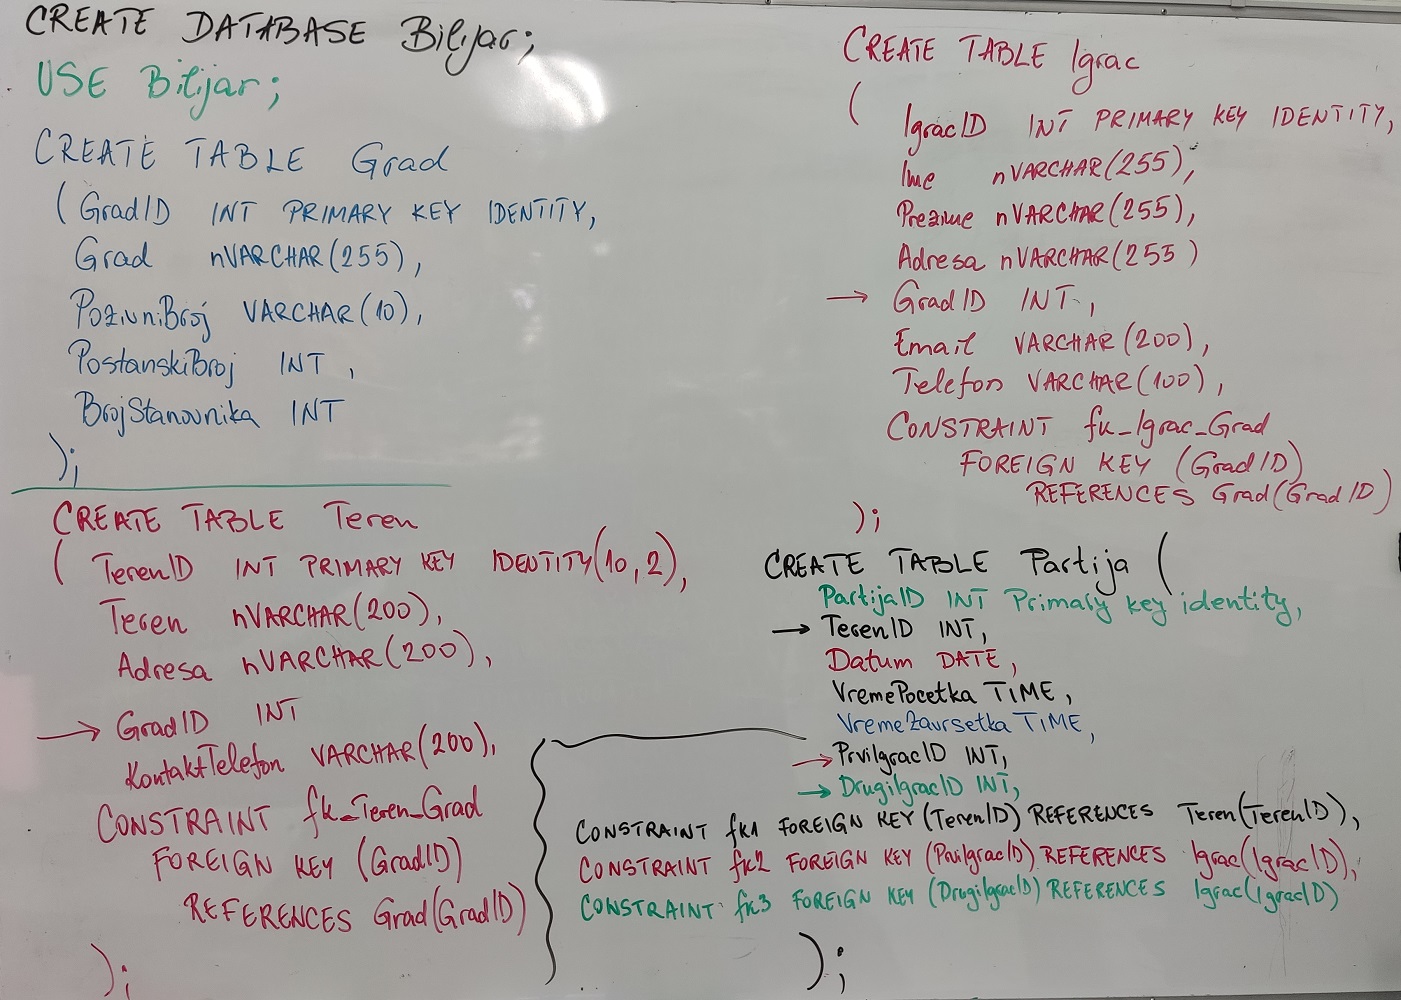 CREATE DATABASE Bilijar;
USE Bilijar;
CREATE TABLE Grad
( GradID INT PRIMARY KEY IDENTITY,
Grad nVARCHAR(255),
PozivniBroj VARCHAR(10),
PostanskiBroj INT,
BrojStanovnika INT
);
CREATE TABLE Teren
( TerenID INT PRIMARY KEY IDENTITY(10,2),
Teren nVARCHAR(200),
Adresa nVARCHAR(200),
→ GradID INT
KontaktTelefon VARCHAR(200),
CONSTRAINT fk_Teren_Grad
FOREIGN KEY (GradID)
REFERENCES Grad(GradID)
);
CREATE TABLE Igrac
(
IgracID INT PRIMARY KEY IDENTITY,
Ime nVARCHAR(255),
Prezime nVARCHAR(255),
Adresa nVARCHAR(255)
→ GradID INT,
Email VARCHAR(200),
Telefon VARCHAR(100),
CONSTRAINT fk_Igrac_Grad
FOREIGN KEY (GradID)
REFERENCES Grad(GradID)
);
CREATE TABLE Partija (
PartijaID INT Primary key identity,
→ TerenID INT,
Datum DATE,
VremePocetka TIME,
VremeZavrsetka TIME,
→ PrviIgracID INT,
→ DrugiIgracID INT,
CONSTRAINT fk1 FOREIGN KEY (TerenID) REFERENCES Teren(TerenID),
CONSTRAINT fk2 FOREIGN KEY (PrviIgracID) REFERENCES Igrac(IgracID),
CONSTRAINT fk3 FOREIGN KEY (DrugiIgracID) REFERENCES Igrac(IgracID)
);